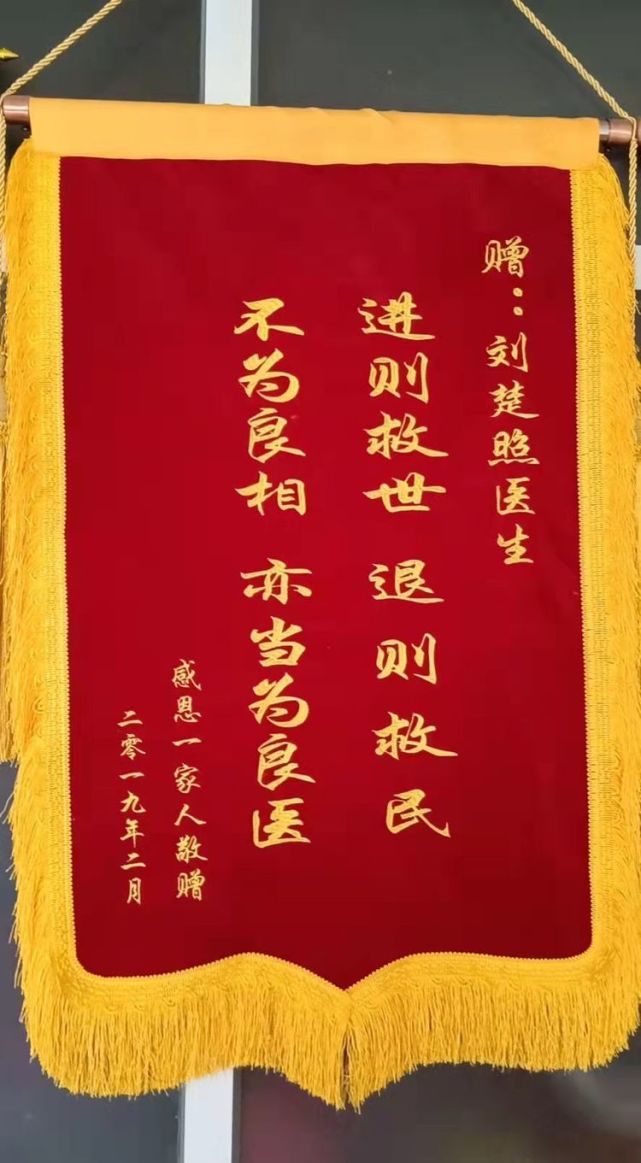 赠：刘楚照医生
进则救世 退则救民
不为良相 亦当为良医
感恩一家人敬赠
二零一九年二月